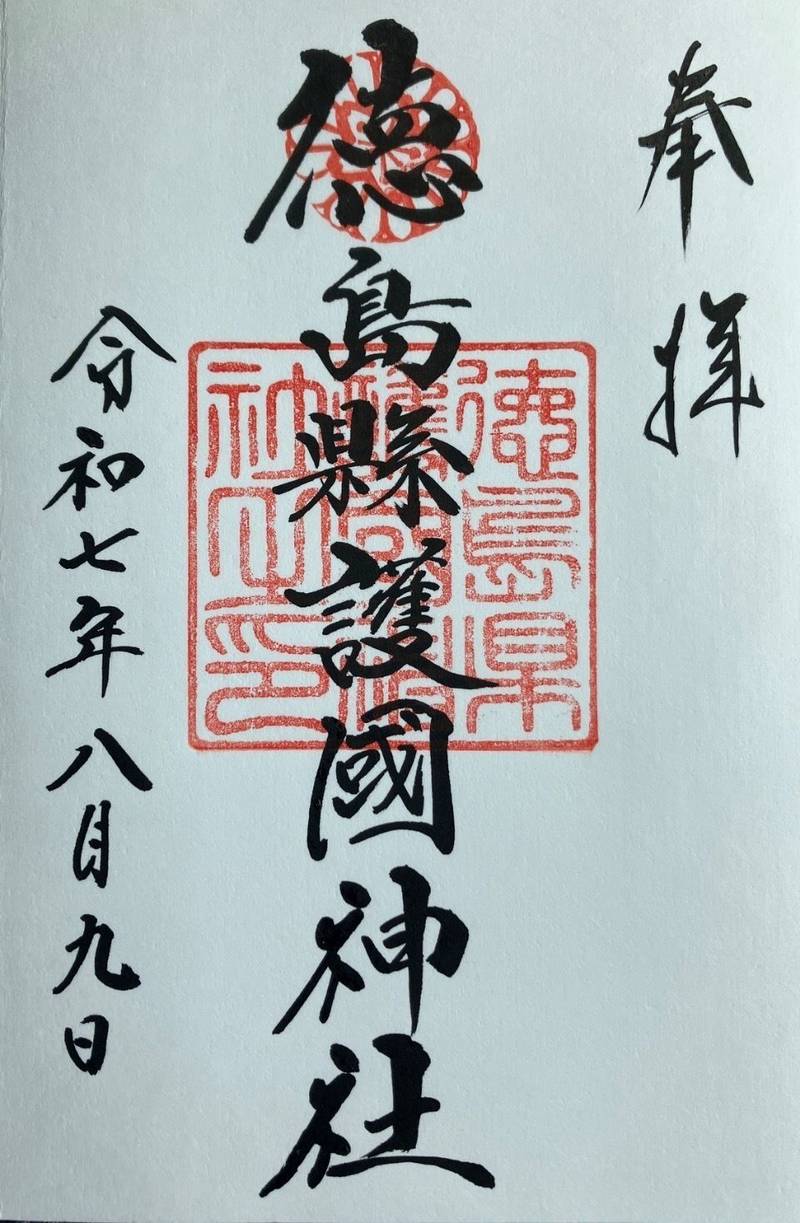 奉拝
徳島縣護國神社
徳島県
護國神
社之印
令和七年八月九日